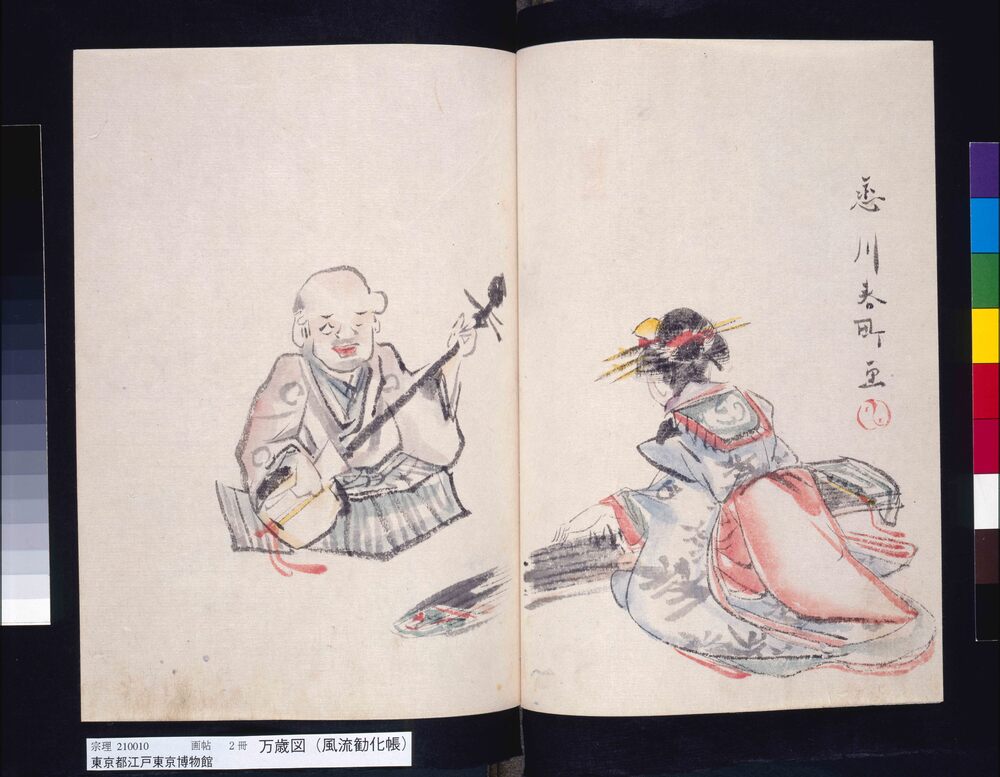 恋川春町画
宗理 210010 画帖 2冊 万歳図（風流勧化帳）
東京都江戸東京博物館